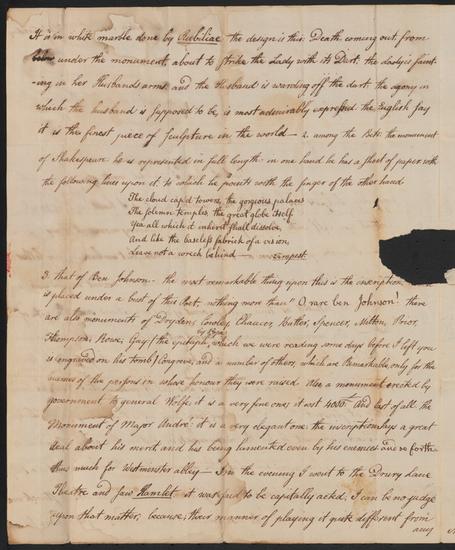 It is in white marble done by Rubiliac the design is this. Death coming out from
under the monument, about to strike the Lady with its Dart, the lady is faint-
-ing in her Husbands arms, and the Husband is warding off the dart. the agony in
which the husband is supposed to be, is most admirably expressed. the English say
it is the finest piece of Sculpture in the world — 2. among the Bets: the monument
of Shakespeare he is represented in full length. in one hand he has a sheet of paper with
the following lines upon it, to which he points with the finger of the other hand
The cloud cap'd towers, the gorgious palaces
The solemn temples, the great globe itself
Yea all which it inherit shall dissolve,
And like the baseless fabrick of a vision,
Leave not a wreck behind — Tempest.
3. that of Ben Johnson — the most remarkable thing upon this is the inscription,
is placed under a bust of this Poet, nothing more than "O rare ben Johnson! there
are also monuments of Dryden, Cowley, Chaucer, Butler, Spencer, Milton, Prior,
Thompson, Rowe, Gay (the epitaph, by Pope which we were reading some days before I left you
is engraved on his tomb) Congreve, and a number of others, which are Remarkable, only for the
names of the persons in whose honour they were raised. Also a monument erected by
government to general Wolfe, it is a very fine one; it cost 4000£ And last of all the
Monument of Major André. it is a very elegant one the inscription says a great
deal about his merit and his being lamented even by his enemies and so forth.
thus much for Westminster abbey — In the evening I went to the Drury Lane
Theatre and saw Hamlet. it was said to be capitally acted; I can be no judge
upon that matter, because, their manner of playing it quite different from
any